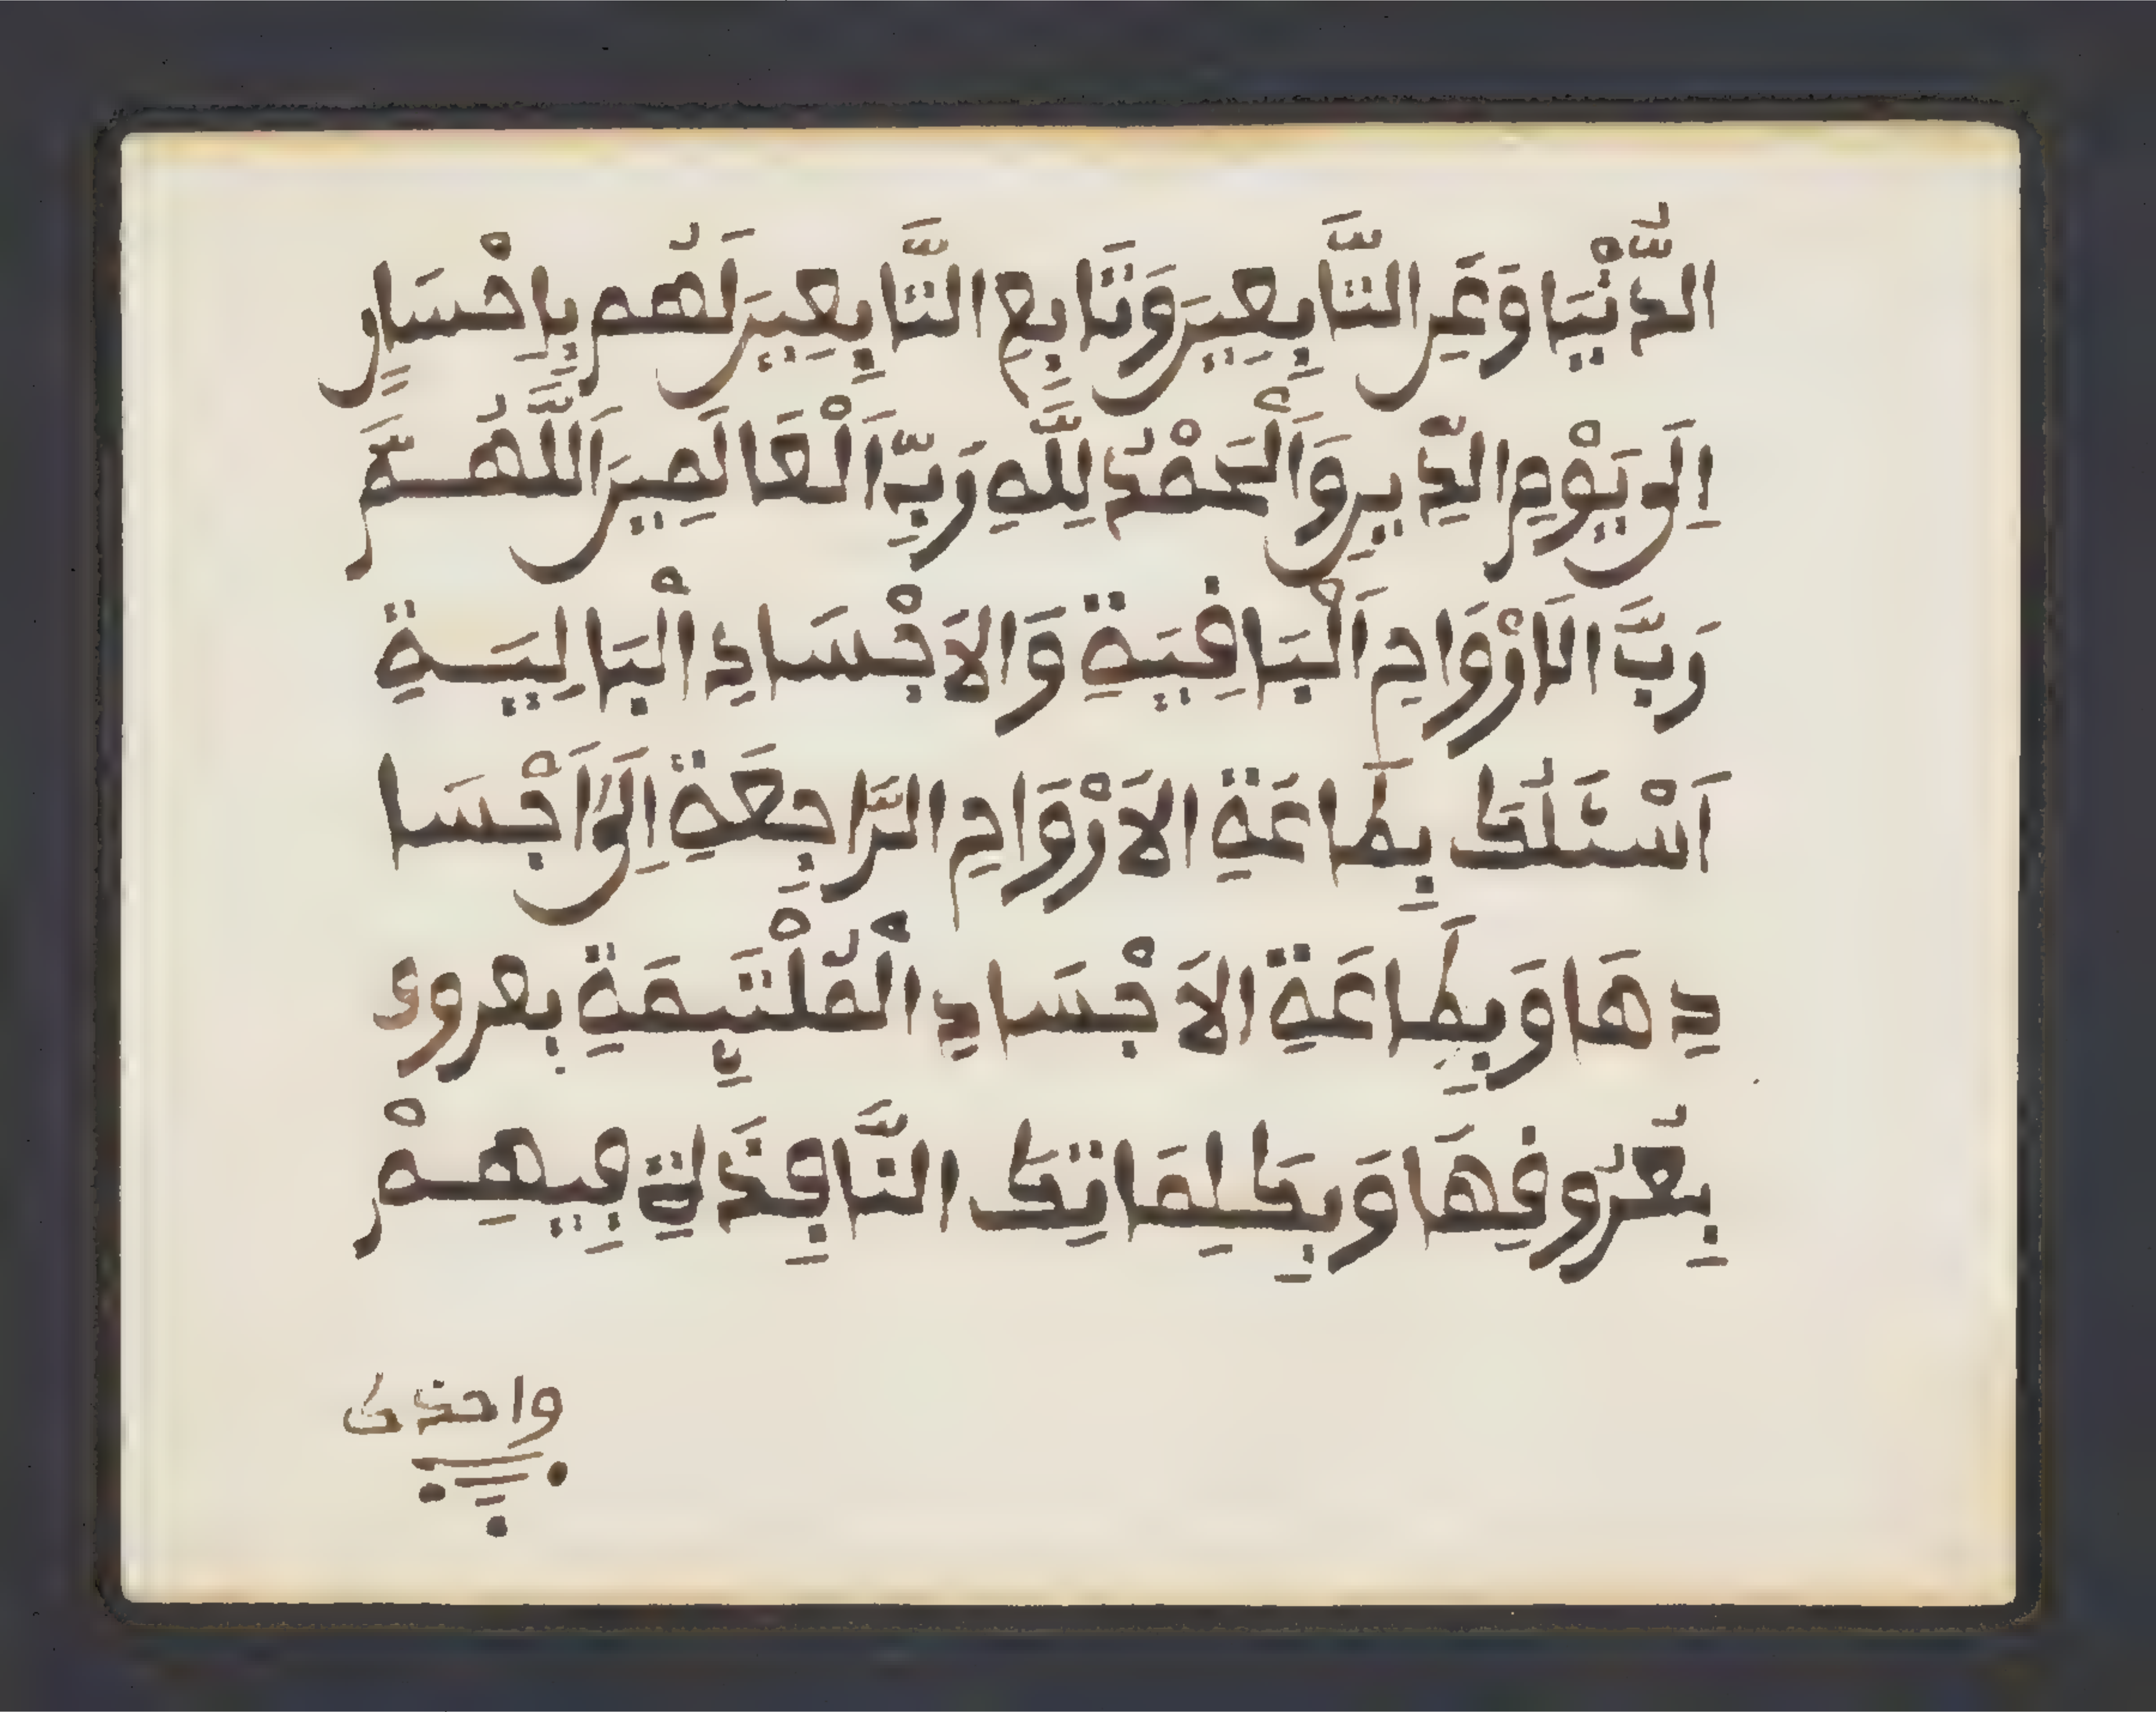 الدُّنْيَا وَعَنِ التَّابِعِينَ وَتَابِعِ التَّابِعِينَ لَهُم بِإِحْسَانٍ
إِلَى يَوْمِ الدِّينِ وَالْحَمْدُ لِلَّهِ رَبِّ الْعَالَمِينَ اَللَّهُمَّ
رَبَّ الَارْوَاحِ اَلْبَافِيَةِ وَالَاجْسَادِ الْبَالِيَةِ
اَسْئَلُكَ بِطَاعَةِ الَارْوَاحِ الرَّاجِعَةِ إِلَى اَجْسَا
دِهَا وَبِطَاعَةِ الَاجْسَادِ الْمُلْتَئِمَةِ بعروف
بِعُرُوفِهَا وَبِكَلِمَاتِكَ النَّافِذَةِ فِيهِمْ
واخذك